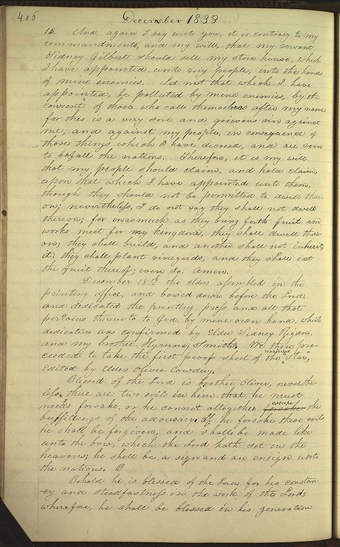 416
December 1833
13. And again I say unto you, it is contrary to my
commandments, and my will, that my servant
Sidney Gilbert should sell my store house, which
I have appointed unto my people, into the hands
of mine enemies. Let not that which I have
appointed, be polluted by mine enemies, by the
consent of those who call themselves after my name
for this is a very sore and grievous sin against
me, and against my people, in consequence of
those things which I have decreed, and are soon
to befall the nations. Therefore, it is my will
that my people should claim, and hold claim,
upon that which I have appointed unto them,
though they should not be permitted to dwell there-
on; nevertheless, I do not say they shall not dwell
thereon; for inasmuch as they bring forth fruit and
works meet for my kingdom, they shall dwell there-
on; they shall build, and another shall not inherit
it; they shall plant vineyards, and they shall eat
the fruit thereof; even so. Amen.
December 18th the elders assembled in the
printing office, and bowed down before the Lord
and dedicated the printing press and all that
pertains thereunto to God, by mine own hand, which
dedication was confirmed by Elder Sidney Rigdon,
and my brother, Hyrum Smith. We then pro-
ceeded to take the first proof sheet of the Star,
edited by Elder Oliver Cowdery.
Blessed of the Lord is brother Oliver, neverthe-
less there are two evils in him that he must
needs forsake, or he cannot altogether escape the
buffetings of the adversary. If he forsake these evils
he shall be forgiven, and shall be made like
unto the bow, which the Lord hath set in the
heavens; he shall be a sign and an ensign unto
the nations. B
Behold he is blessed of the Lord for his constan-
cy and steadfastness in the work of the Lord;
wherefore, he shall be blessed in his generation